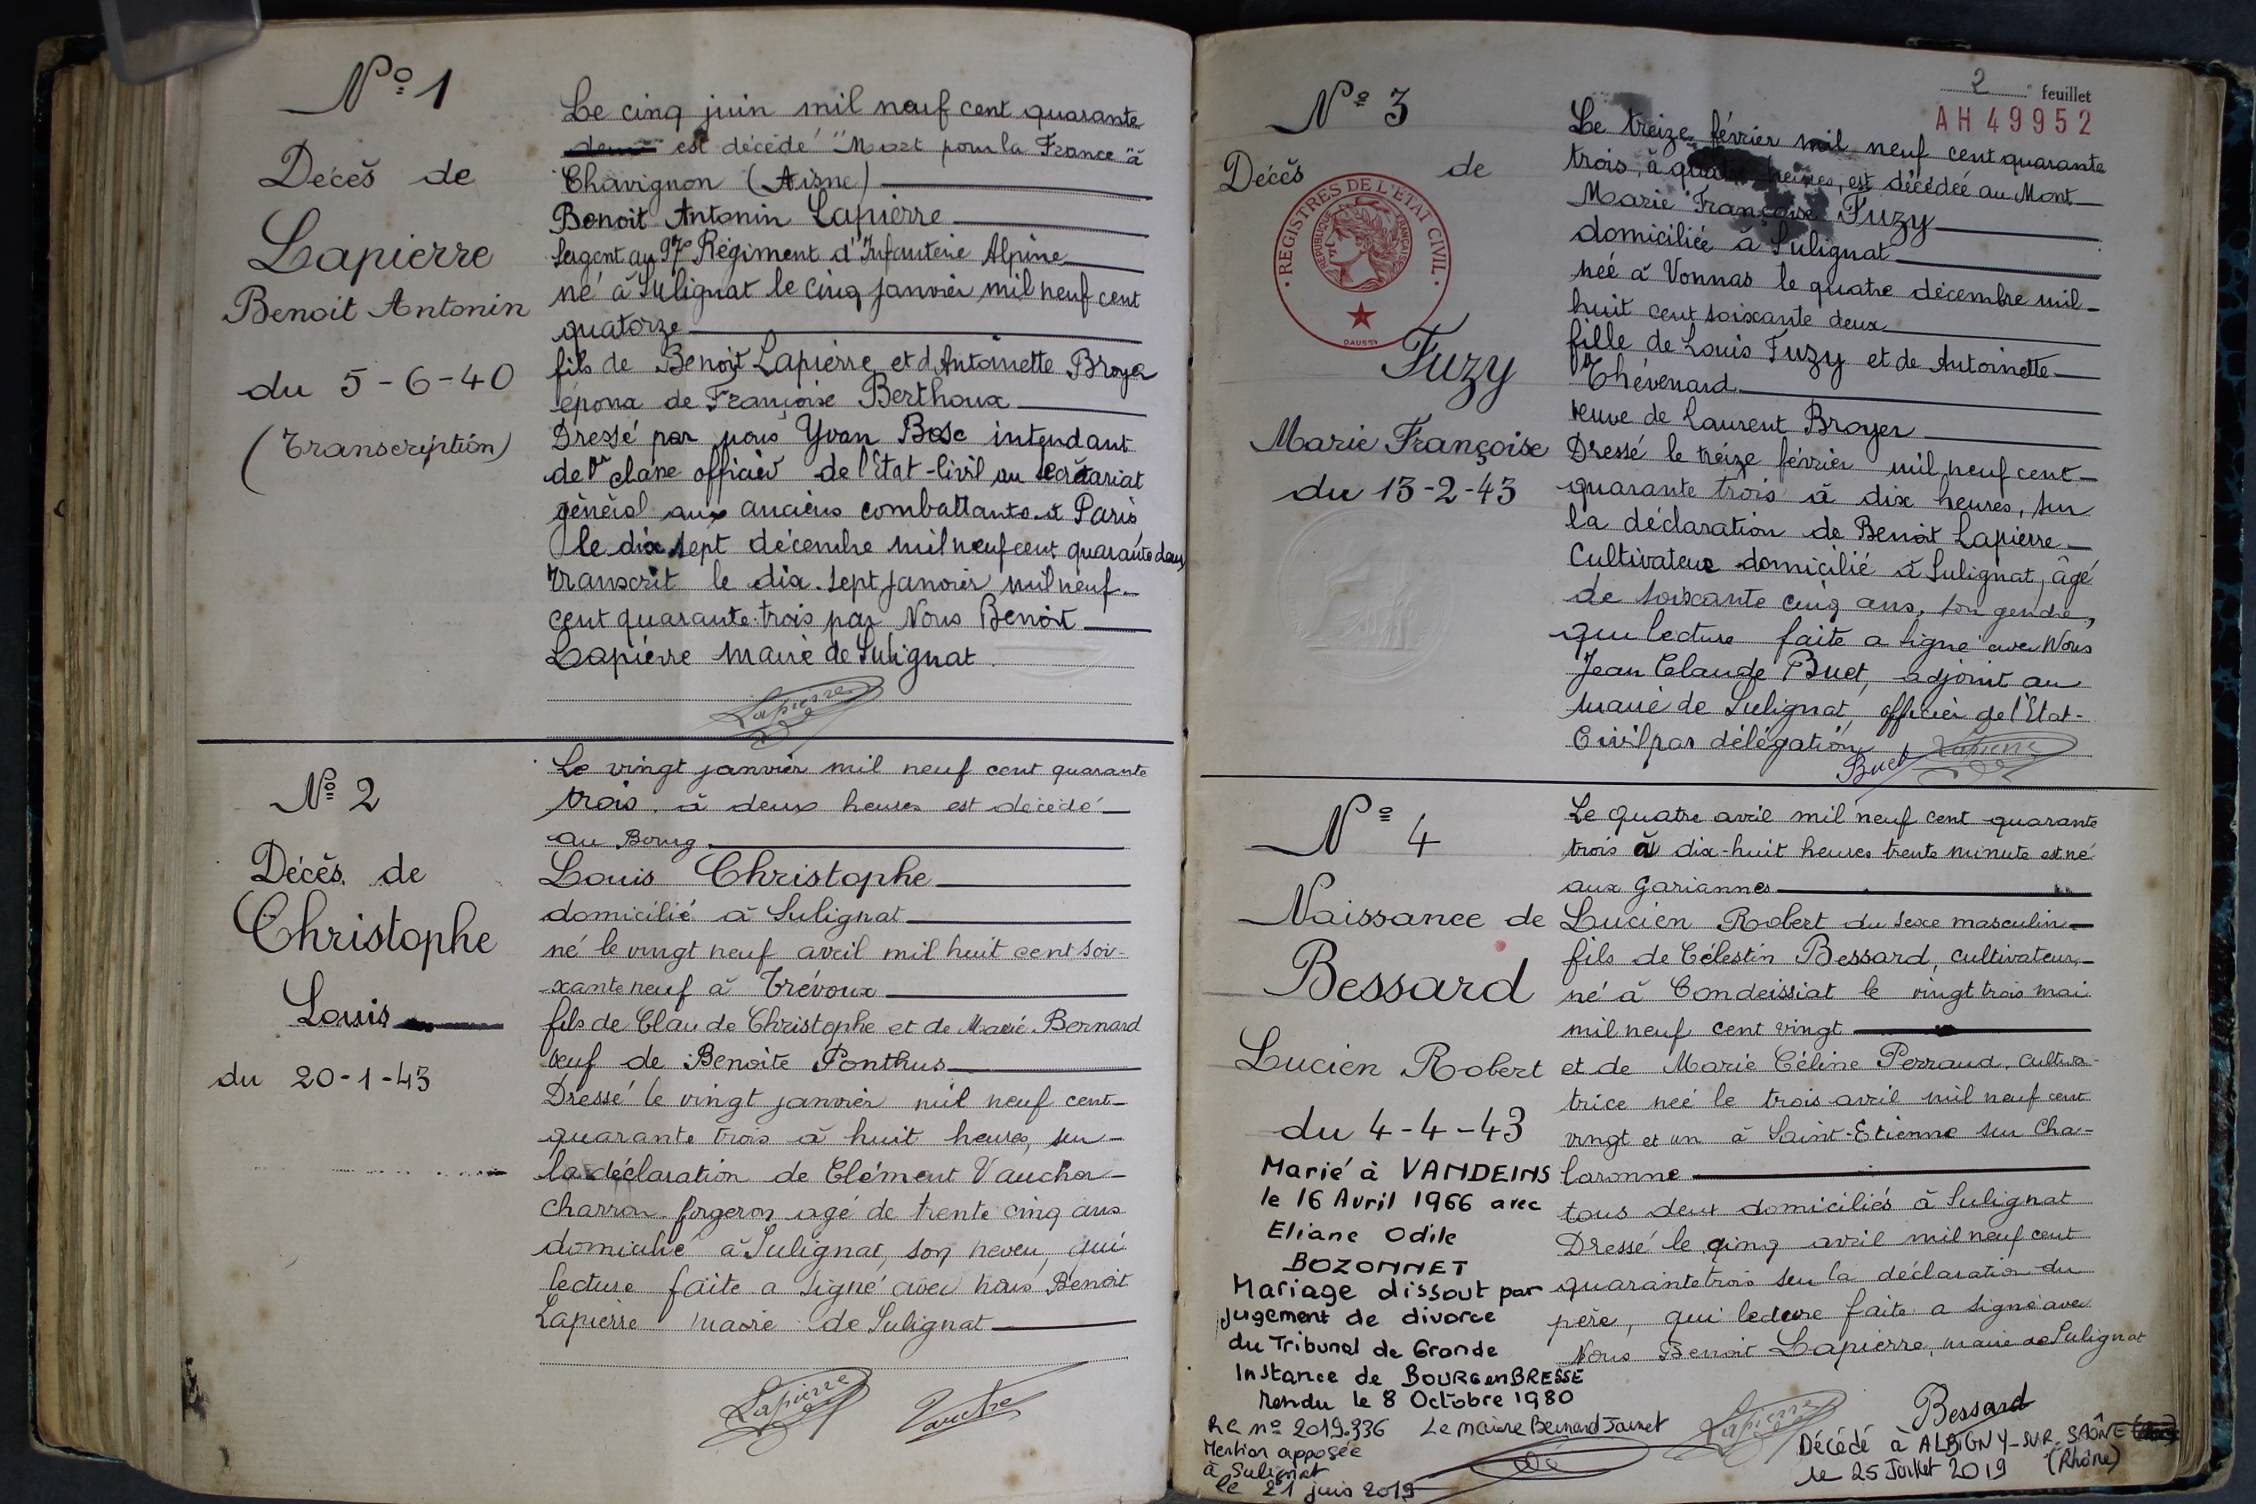 Nº 1
Décès de
Lapierre
Benoit Antonin
du 5-6-40
(Transcription)
Le cinq juin mil neuf cent quarante
est décédé "Mort pour la France" à
Chavignon (Aisne)
Benoit Antonin Lapierre
Sergent au 97e Régiment d'Infanterie Alpine
né à Sulignat le cinq janvier mil neuf cent
quatorze
fils de Benoit Lapierre et d'Antoinette Broyer
époux de Françoise Berthoux
Dressé par nous Yvan Bosc intendant
de 1re classe officier de l'Etat-Civil au secrétariat
général aux anciens combattants à Paris
le dix sept décembre mil neuf cent quarante deux
Transcrit le dix-sept janvier mil neuf
cent quarante-trois par Nous Benoit
Lapierre maire de Sulignat
Lapierre
Nº 2
Décès de
Christophe
Louis
du 20-1-43
Le vingt janvier mil neuf cent quarante
trois à deux heures est décédé
au Bourg
Louis Christophe
domicilié à Sulignat
né le vingt neuf avril mil huit cent soi-
xante neuf à Trévoux
fils de Claude Christophe et de Marie Bernard
veuf de Benoite Ponthus
Dressé le vingt janvier mil neuf cent
quarante trois à huit heures, sur
la déclaration de Clément Vaucher
charron forgeron agé de trente cinq ans
domicilié à Sulignat, son neveu, qui
lecture faite a signé avec nous Benoit
Lapierre maire de Sulignat
Lapierre
2 feuillet
AH 49952
Nº 3
Décès de
REGISTRES DE L'ETAT CIVIL
REPUBLIQUE FRANÇAISE
Fuzy
Marie Françoise
du 13-2-43
Le treize février mil neuf cent quarante
trois, à quatre heures, est décédée au Mont
Marie Françoise Fuzy
domiciliée à Sulignat
née à Vonnas le quatre décembre mil
huit cent soixante deux
fille de Louis Fuzy et de Antoinette
Thévenard
veuve de Laurent Broyer
Dressé le treize février mil neuf cent
quarante trois à dix heures, sur
la déclaration de Benoit Lapierre
Cultivateur domicilié à Sulignat, âgé
de soixante cinq ans, son gendre,
qui lecture faite a signé avec Nous
Jean Claude Buet, adjoint au
maire de Sulignat, officier de l'Etat-
Civil par délégation
Buet Lapierre
Nº 4
Naissance de
Bessard
Lucien Robert
du 4-4-43
Marié à VANDEINS
le 16 Avril 1966 avec
Eliane Odile
BOZONNET
Mariage dissout par
jugement de divorce
du Tribunal de Grande
Instance de BOURG en BRESSE
Rendu le 8 Octobre 1980
RC nº 2019.336 Le maire
Mention apposée
à Sulignat
le 21 juin 2019
Le quatre avril mil neuf cent quarante
trois à dix-huit heures trente minute est né
aux Gariannes
Lucien Robert du sexe masculin
fils de Célestin Bessard, cultivateur,
né à Condeissiat le vingt trois mai
mil neuf cent vingt
et de Marie Céline Perraud, cultiva-
trice née le trois avril mil neuf cent
vingt et un à Saint-Etienne sur Cha-
laronne
tous deux domiciliés à Sulignat
Dressé le cinq avril mil neuf cent
quarante trois sur la déclaration du
père, qui lecture faite a signé avec
Nous Benoit Lapierre, maire de Sulignat
Lapierre Bessard
Décédé à ALBIGNY-SUR-SAÔNE
(Rhône)
le 25 Juillet 2019